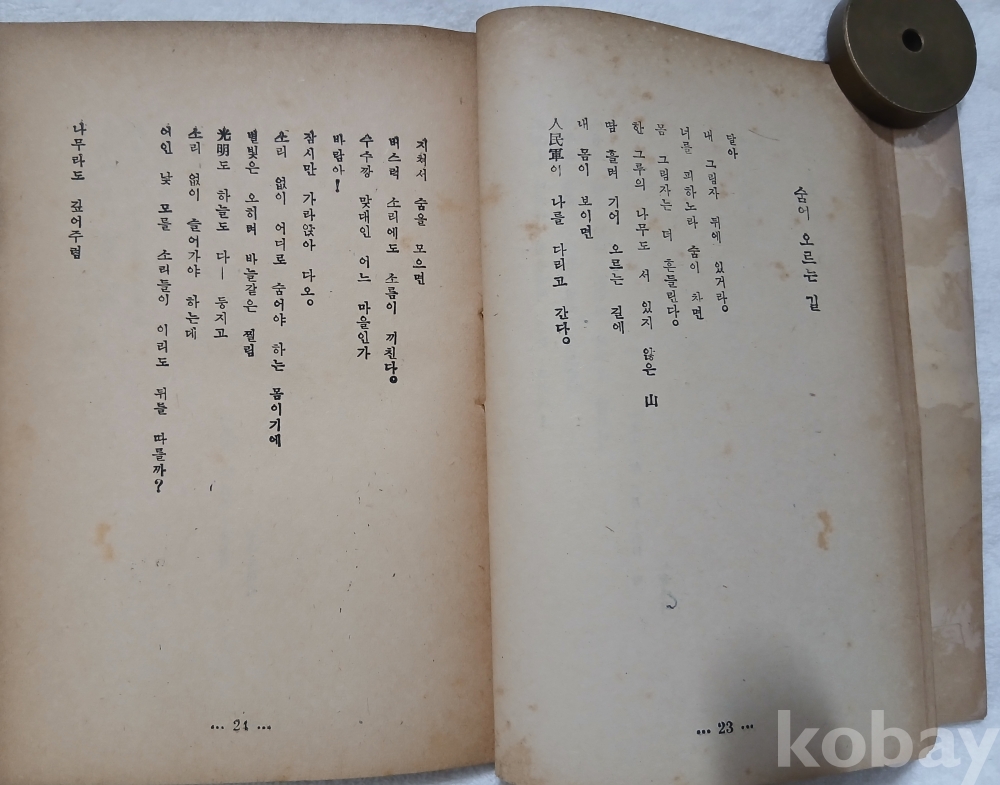 숨어 오르는 길
달아
내 그림자 뒤에 있거라。
너를 피하노라 숨이 차면
몸 그림자는 더 흔들린다。
한 그루의 나무도 서 있지 않은 山
땀 흘려 기어 오르는 길에
내 몸이 보이면
人民軍이 나를 다리고 간다。
... 23 ...
지처서 숨을 모으면
버스럭 소리에도 소름이 끼친다。
수수깡 맞대인 어느 마을인가
바람아!
잠시만 가라앉아 다오。
소리 없이 어디로 숨어야 하는 몸이기에
별빛은 오히려 바늘같은 찔림
光明도 하늘도 다— 등지고
소리 없이 들어가야 하는데
여인 낯 모를 소리들이 이리도 뒤를 따를까?
나무라도 깊어주렴
... 24 ...
kobay